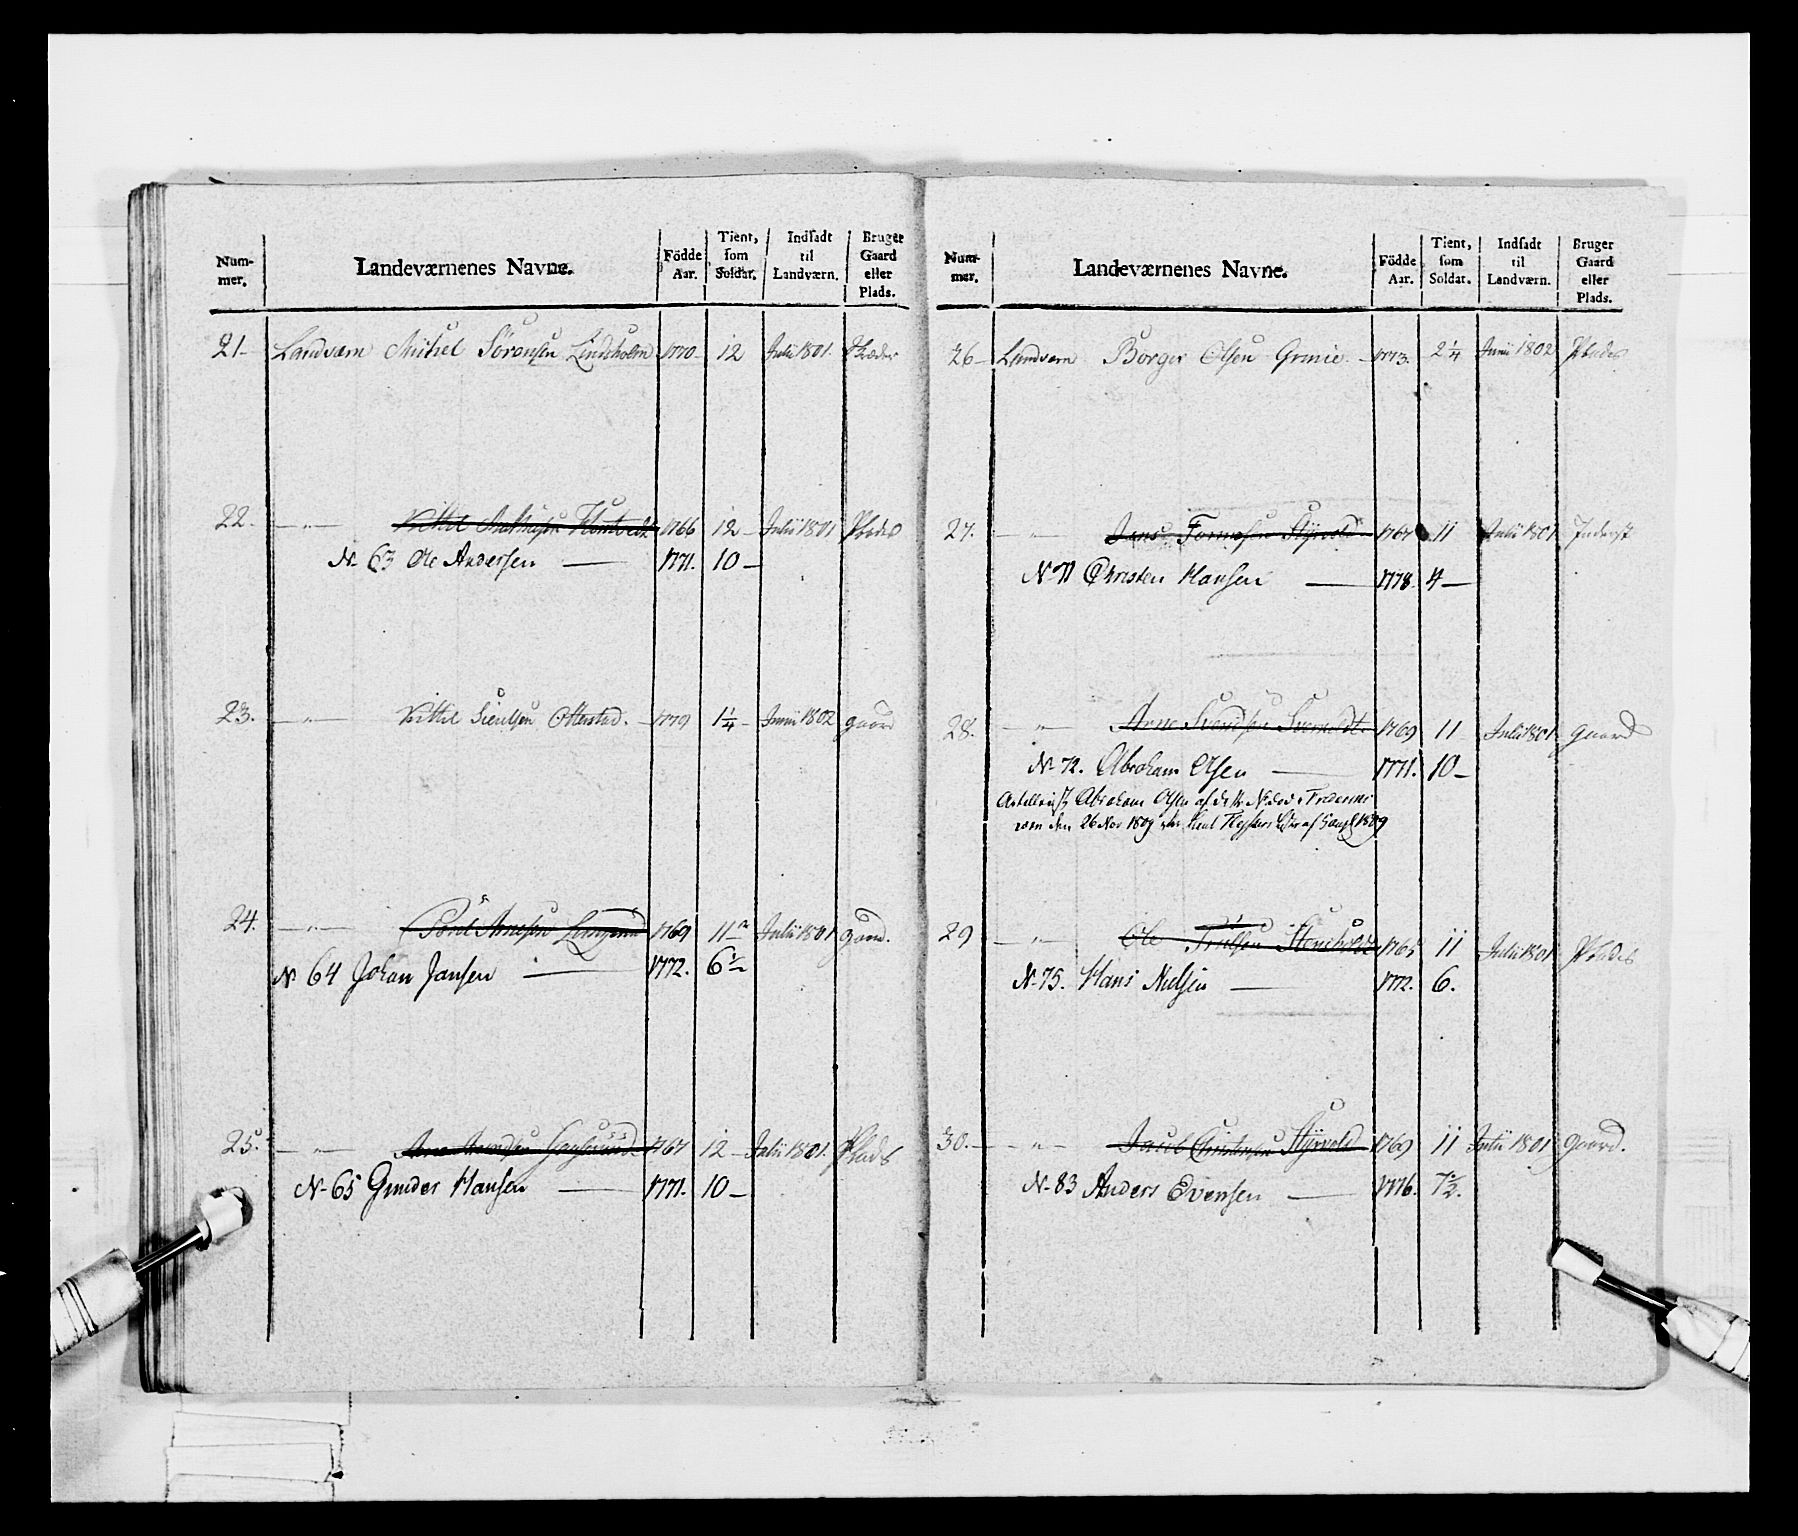 Num-mer. Landeværnenes Navne. Födde Aar. Tient, som Soldat. Indsadt til Landværn. Bruger Gaard eller Plads.
21- Landværn Michel Sörensen Lindsholm 1770 12 Julii 1801.
22. — " — Kittel 1766 12- Julii 1801 Plads
N 63 Ole Andersen — 1771. 10 —
23. — " — Kittel Sieulsen Ottersted. - 1779 1 1/4 - Junii 1802 gaard
24. — " — Poul Arnesen 1769 11 Julii 1801 gaard.
N 64 Johan Jansen — 1772. 6 1/2
25. — " — 1767 12 - Julii 1801. Plads
N 65 Gunder Hansen — 1771. 10 —
Num-mer. Landeværnenes Navne. Födde Aar. Tient, som Soldat. Indsadt til Landværn. Bruger Gaard eller Plads.
26 - Landværn Borger Olsen Grinie. - 1773. 2 1/4 Junii 1802 Plads
27. — " — Jens Styrvold 1767 11 Julii 1801 Inderst
N 71 Christen Hansen — 1778. 4 —
28. — " — Arne Svendsen 1769 11 Julii 1801 gaard
N 72. Abraham Olsen — 1771. 10 —
Abraham Olsen af d. N död i
den 26 Nov 1809 af 1809
29 — " — Ole Stensholdt 1765 11 Julii 1801 Plads
N 75. Hans Nielsen — 1772. 6.
30. — " — Jacob Christensen Styrvold 1769 11 Julii 1801 gaard.
N 83 Anders Evensen — 1776. 7 1/2.